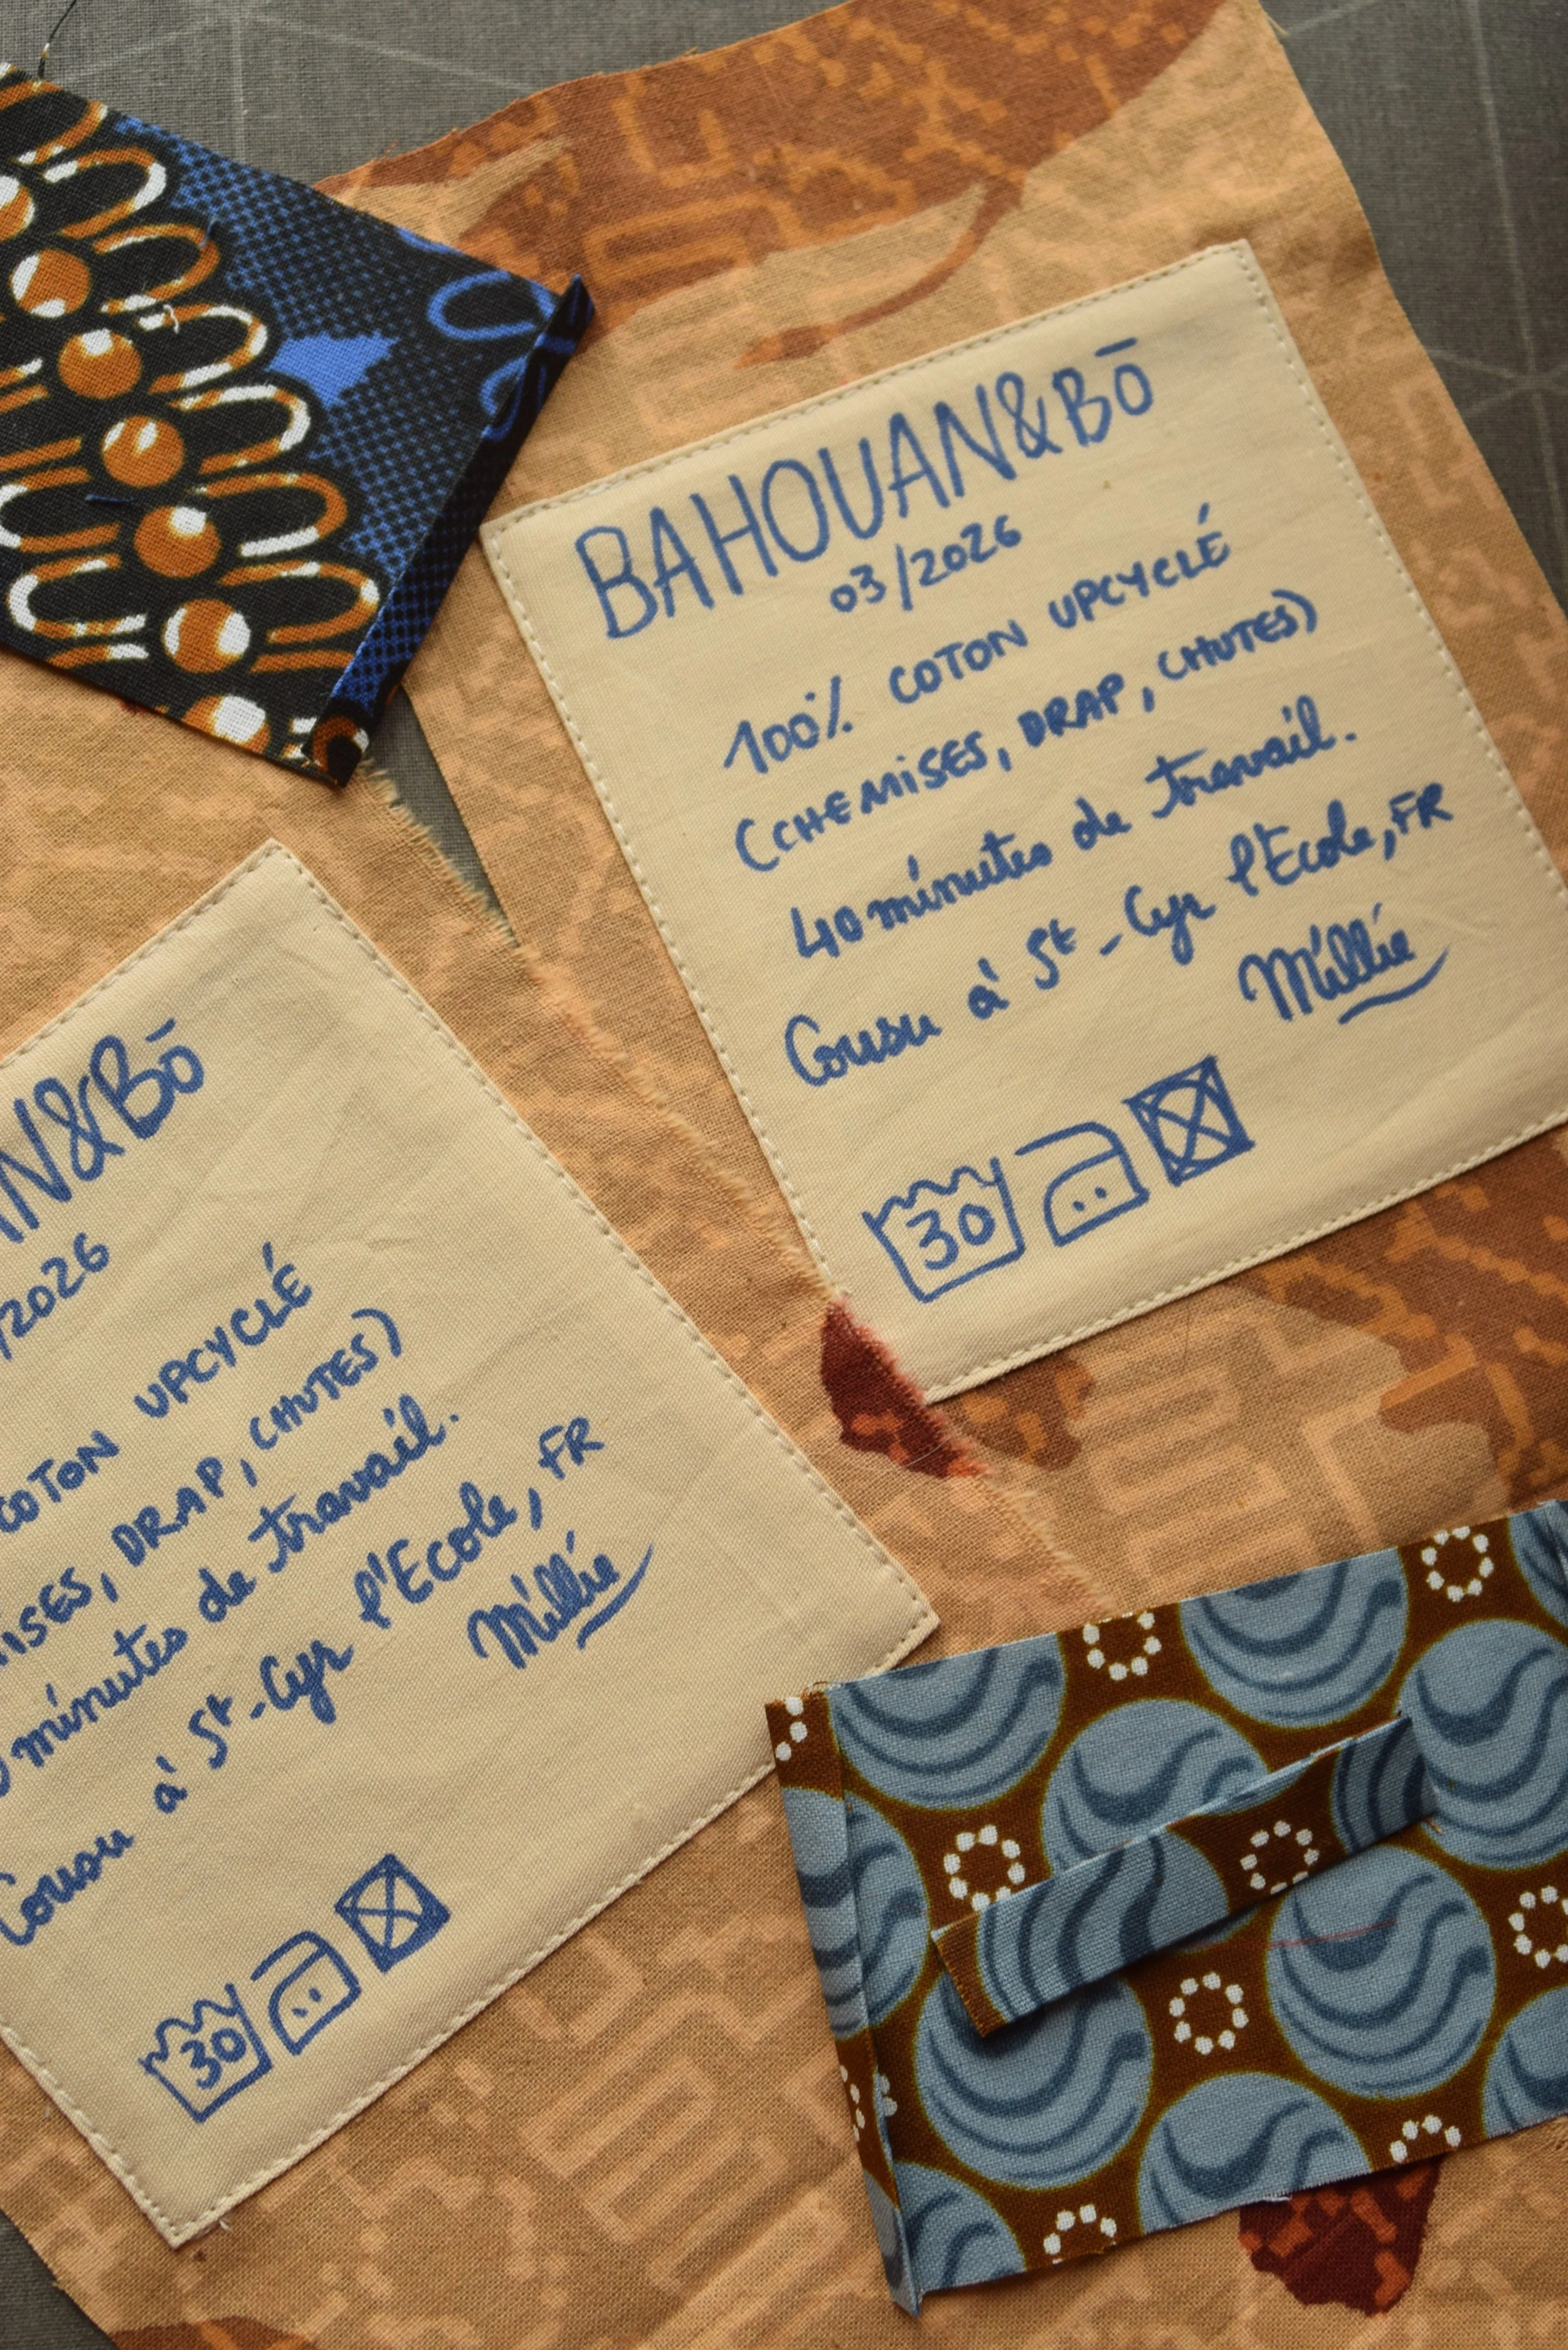 BAHOUAN&BŌ
03/2026
100% COTON UPCYCLÉ
(CHEMISES, DRAP, CHUTES)
40 minutes de travail.
Cousu à St-Cyr l'Ecole, FR
Millie
30
N&BŌ
/2026
COTON UPCYCLÉ
MISES, DRAP, CHUTES)
minutes de travail.
Cousu à St-Cyr l'Ecole, FR
Millie
30